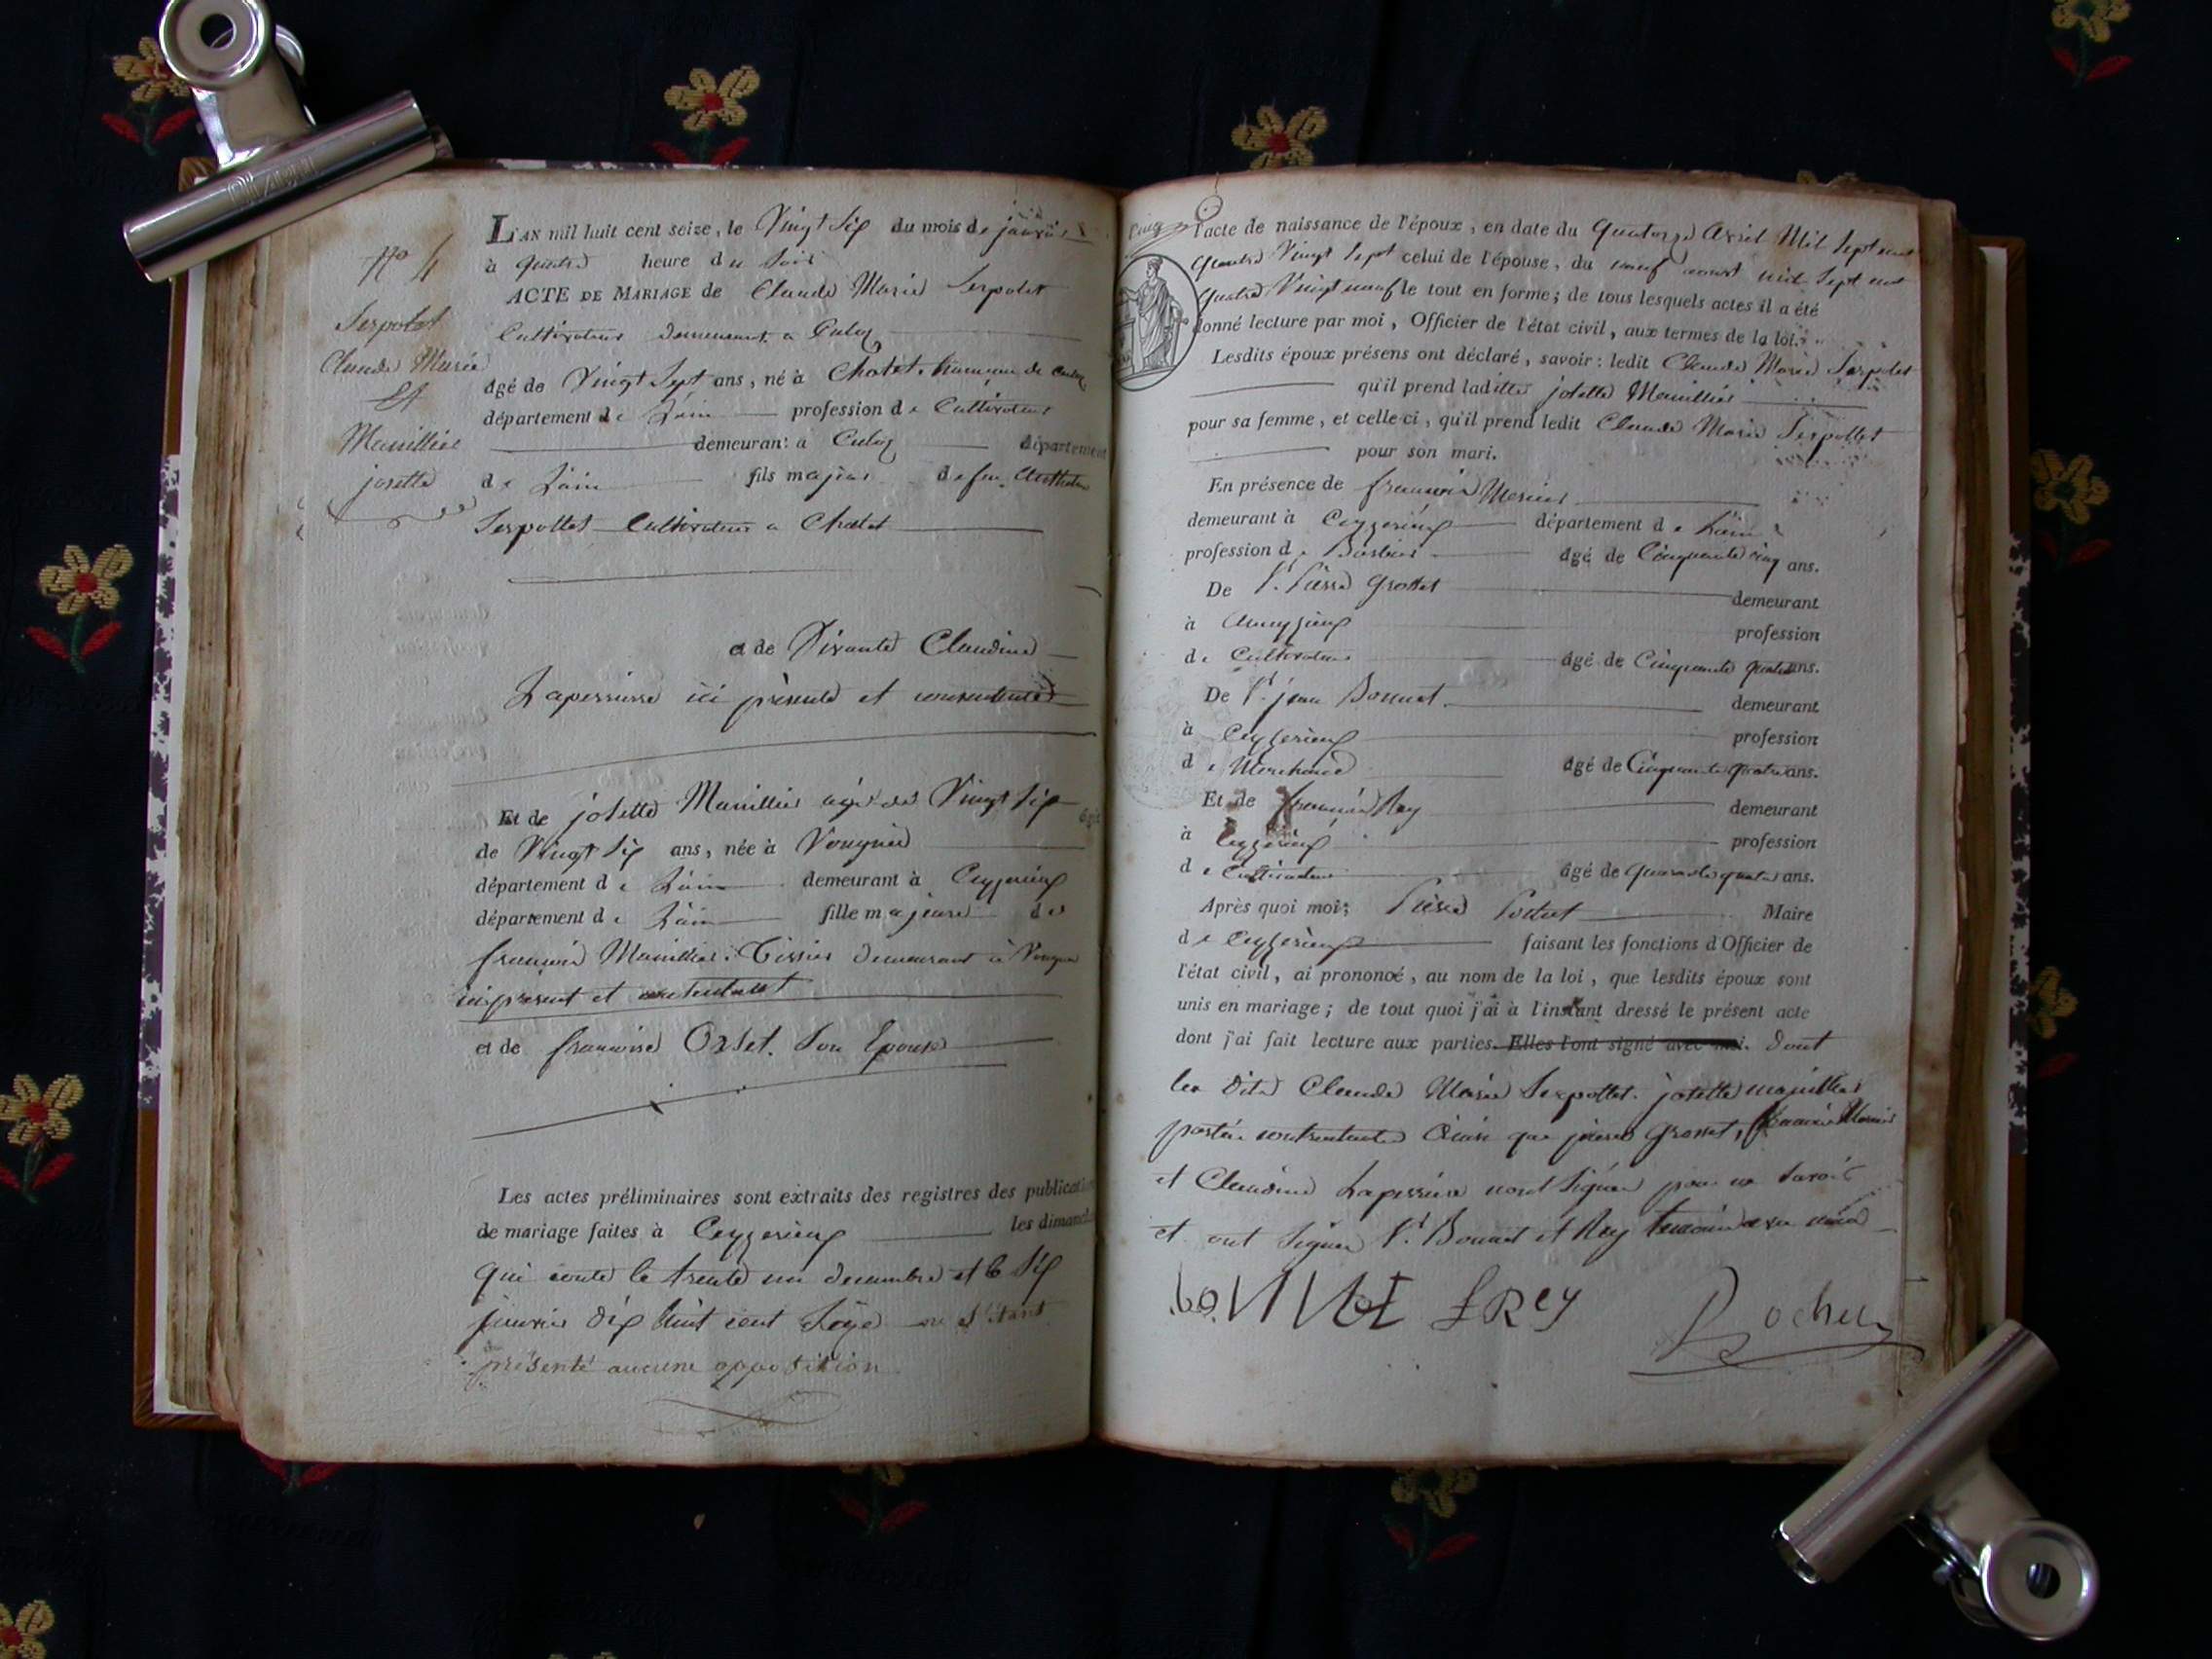 No 4
Serpolet
Claude Marie
Et
Manillier
josette
L'AN mil huit cent seize, le Vingt Six du mois de janvier
à quatre heure du Soir
ACTE DE MARIAGE de Claude Marie Serpolet
Cultivateur demeurant a Culoz
âgé de Vingt Sept ans, né à Chatel hameau de Culoz
département de Lain profession de Cultivateur
demeurant à Culoz département
de Lain fils majeur de feu
Serpollet Cultivateur a Chatel
et de Vivante Claudine
Laperriere ici présente et consentente
Et de josette Manillier agée de Vingt Six
de Vingt Six ans, née à Vongnes
département de Lain demeurant à Ceyzerieux
département de Lain fille majeure de
françois Manillier Tissier demeurant à
ici present et consentant
et de francoise Son Epouse
Les actes préliminaires sont extraits des registres des publications
de mariage faites à Ceyzerieux les dimanches
qui conte le trente un decembre et le Six
janvier dix huit cent Seize ne s'etant
présenté aucune opposition
l'acte de naissance de l'époux, en date du Quatorze Avril Mil Sept cent
quatre Vingt Sept celui de l'épouse, du neuf aoust mil Sept cent
quatre Vingt neuf le tout en forme; de tous lesquels actes il a été
donné lecture par moi, Officier de l'état civil, aux termes de la loi.
Lesdits époux présens ont déclaré, savoir: ledit Claude Marie Serpolet
qu'il prend laditte josette Manillier
pour sa femme, et celle-ci, qu'il prend ledit Claude Marie Serpollet
pour son mari.
En présence de françois Mercier
demeurant à Ceyzerieux département de Lain
profession de âgé de Cinquante cinq ans.
De Sr. Pierre Grosset demeurant
à profession
de Cultivateur âgé de Cinquante quatre ans.
De Sr. jean Bonnet demeurant
à Ceyzerieux profession
de Marchand âgé de Cinquante quatre ans.
Et de françois Rey demeurant
à Ceyzerieux profession
de Cultivateur âgé de quarante quatre ans.
Après quoi moi, Pierre Maire
de Ceyzerieux faisant les fonctions d'Officier de
l'état civil, ai prononcé, au nom de la loi, que lesdits époux sont
unis en mariage; de tout quoi j'ai à l'instant dressé le présent acte
dont j'ai fait lecture aux parties. Elles l'ont signé avec moi. dont
les dits Claude Marie Serpollet. josette manillier
parties contractantes que pierre Grosset, françois Mercier
et Claudine Laperriere nont Signés pour ne Savoir
et ont Signer Sr. Bonnet et Rey temoins avec moi
boNNet fRey Rochex